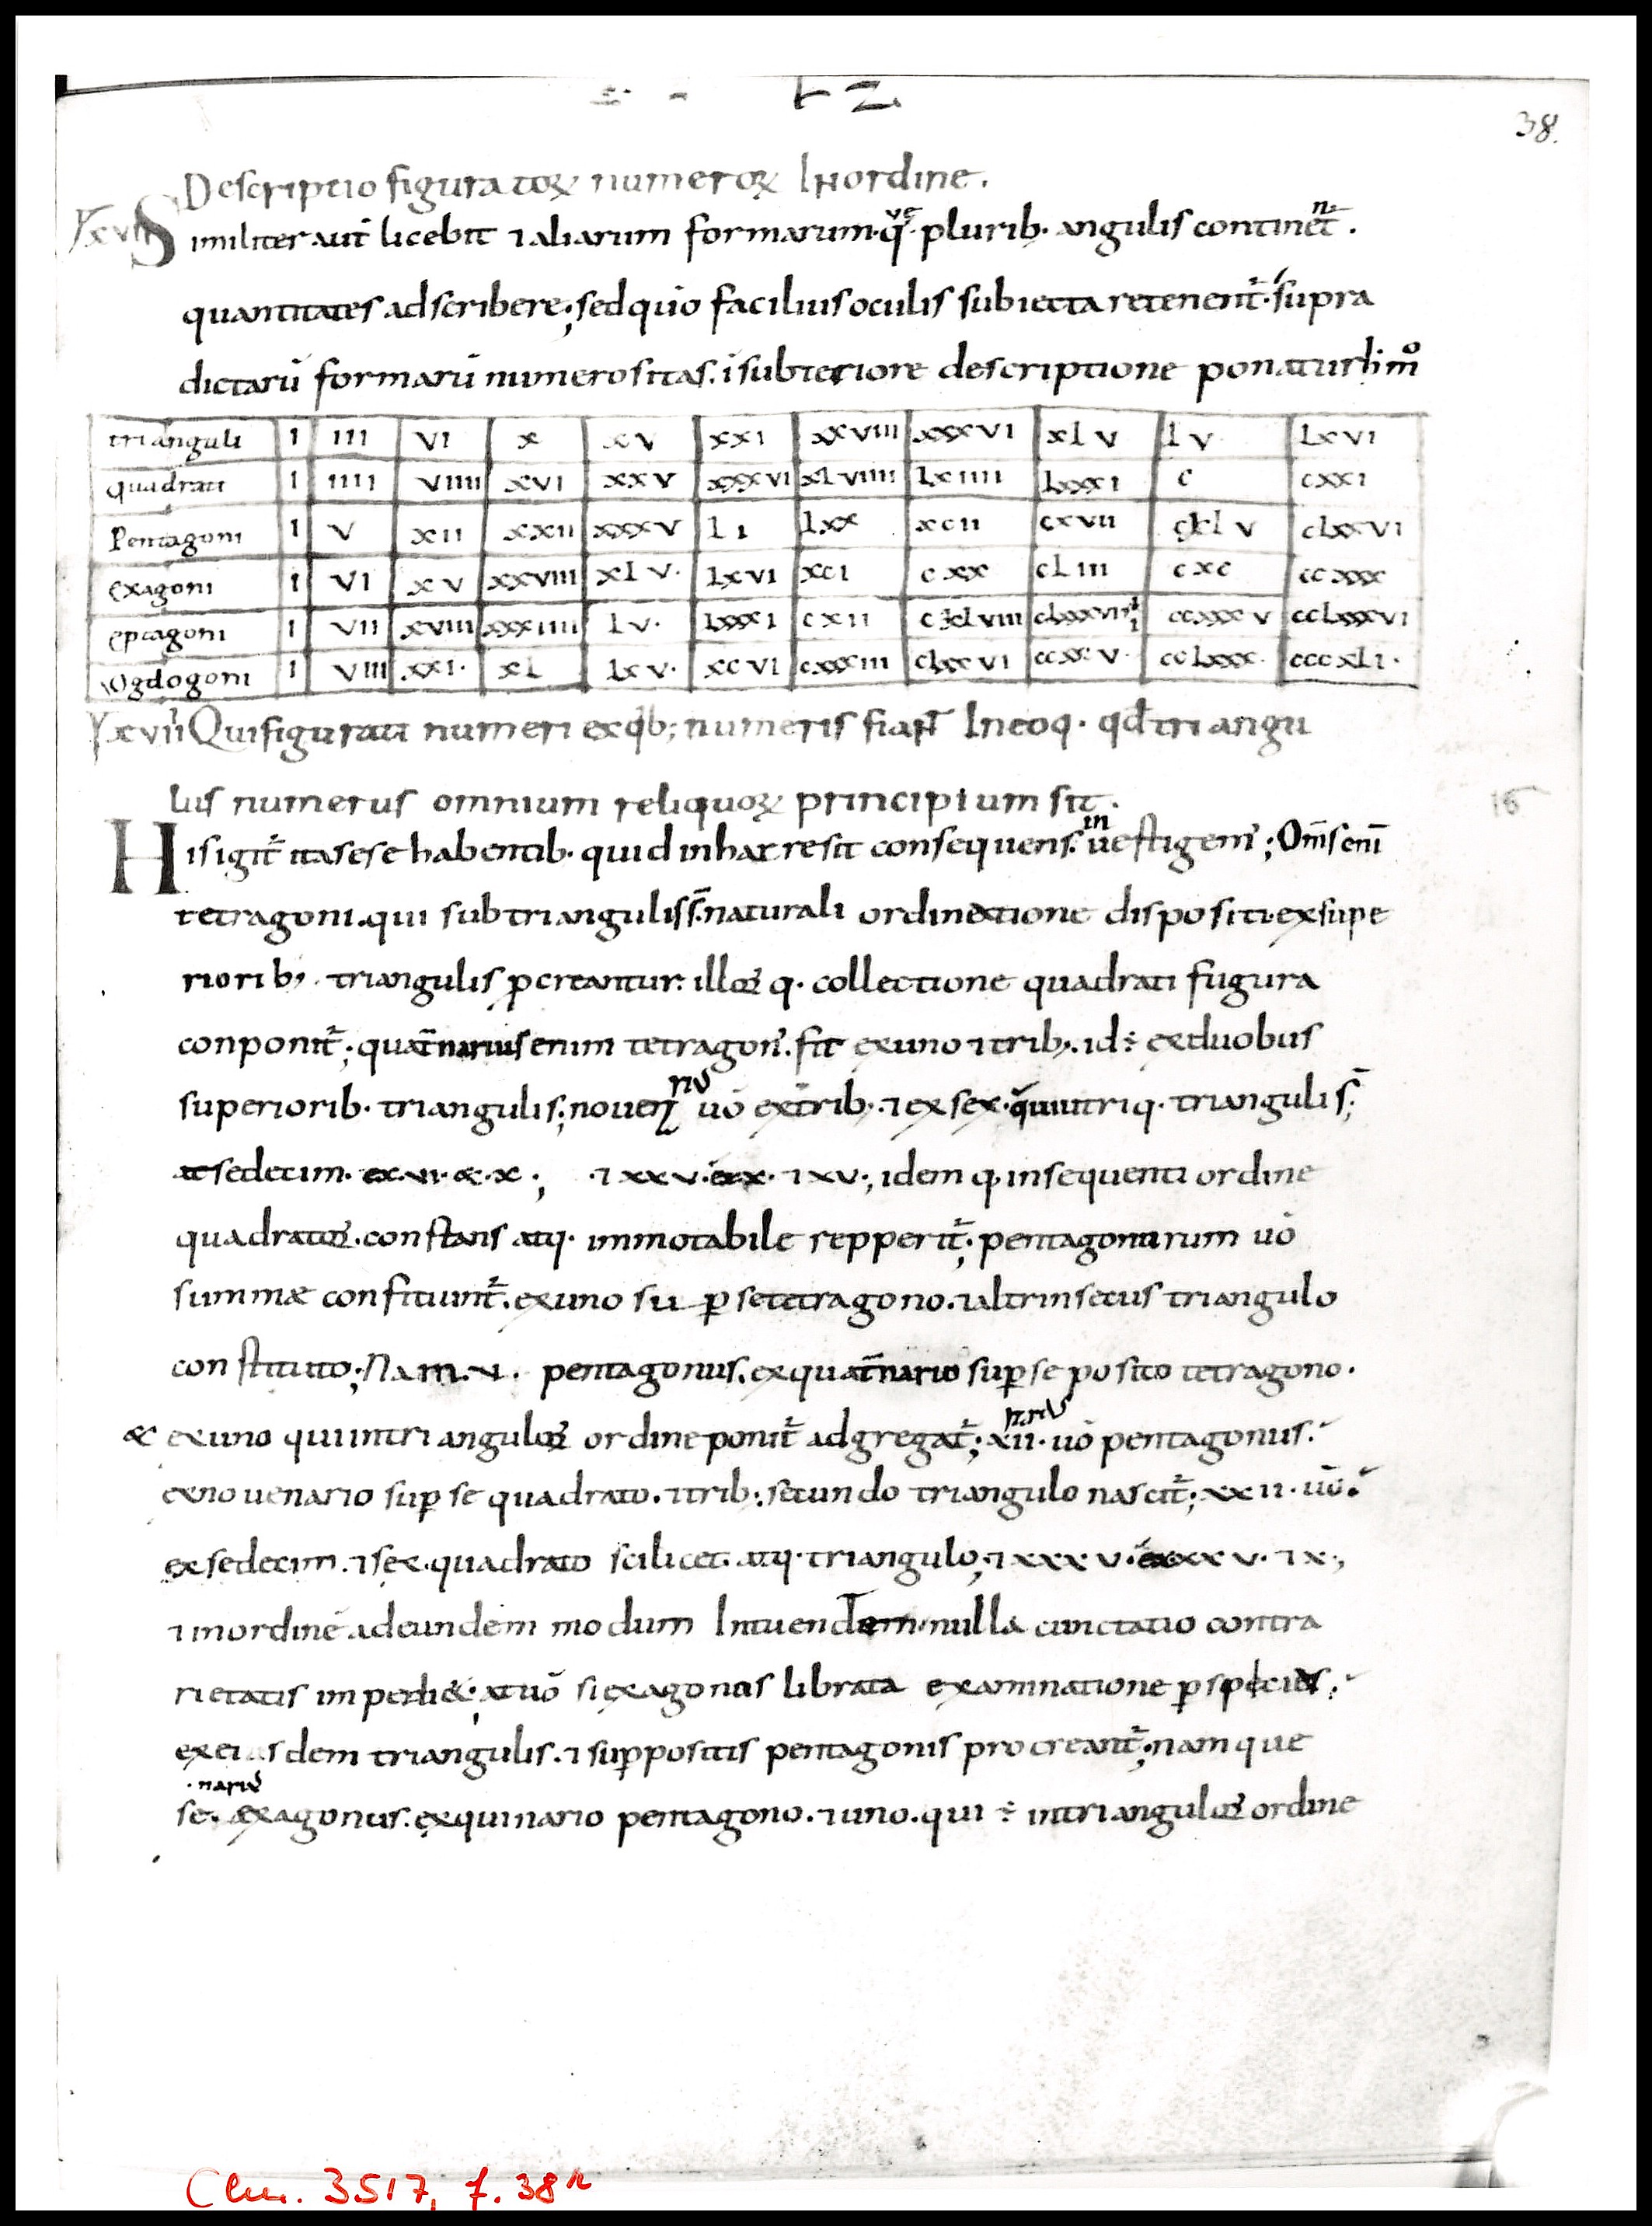 38.
Descriptio figuratoꝝ numeroꝝ In ordine.
xvii Similiter aut̄ licebit ⁊ aliarum formarum. q̄ue plurib· angulis continent̄.
quantitates adscribere; sed quō facilius oculis subiecta retenent̄. supra
dictarū formarū numerositas. ī subteriore descriptione ponatur
trianguli I III VI X XV XXI XXVIII XXXVI XLV LV LXVI
quadrati I IIII VIIII XVI XXV XXXVI XLVIIII LXIIII LXXXI C CXXI
Pentagoni I V XII XXII XXXV LI LXX XCII CXVII CXLV CLXXVI
exagoni I VI XV XXVIII XLV· LXVI XCI CXX CLIII CXC CCXXX
eptagoni I VII XVIII XXXIIII LV· LXXXI CXII CXLVIII CLXXXVIIII CCXXXV CCLXXXVI
Ogdogoni I VIII XXI· XL LXV· XCVI CXXXIII CLXXVI CCXXV· CCLXXX· CCCXLI·
xviii Qui figurati numeri ex qb; numeris fiant In eoq· qd̄ triangu
lus numerus omnium reliquoꝝ principium sit.
His igit̄ ita sese habentib· quid in hac re sit consequens. inuestigem'; Om̄s enī
tetragoni. qui sub triangulis s̄. naturali ordinatione dispositi. ex supe
riorib; triangulis ꝓcreantur. illoꝝ q· collectione quadrati fugura
conponit̄; quat̄narius enim tetragon'. fit ex uno ⁊ trib;. id ÷ ex duobus
superiorib· triangulis; nouenarius uō ex trib;. ⁊ ex sex. q̄ uiutriq· triangulis̄;
sedecim. ex. vi. & . x; ⁊ xxv. ex x. ⁊ xv; idem q. insequenti ordine
quadratoꝝ. constans atq· immotabile repperit̄; pentagonarum uō
summæ confitiunt̄. ex uno su ꝑ se tetragono. ⁊ altrinsecus triangulo
constituto; Nam. v. pentagonus. ex quat̄nario suꝑ se posito tetragono.
& ex uno qui in trianguloꝝ ordine ponit̄ adgregat̄; xii. uō pentagonus.
ex nouenario suꝑ se quadrato. ⁊ trib;. secundo triangulo nascit̄; xxii. uō.
ex sedecim. ⁊ sex. quadrato scilicet. atq· triangulo; ⁊ xxxv. ex xxv. ⁊ x;
⁊ in ordinē ad eundem modum Intuend nulla cunctatio contra
rietatis impedi&; at uō si exagonas librata examinatione ꝑspicies.
ex eisdem triangulis. ⁊ suꝑpositis pentagonis procreant̄; namque
senarius exagonus. ex quinario pentagono. ⁊ uno. qui ÷ in trianguloꝝ ordine
16
Clm. 3517, f. 38r